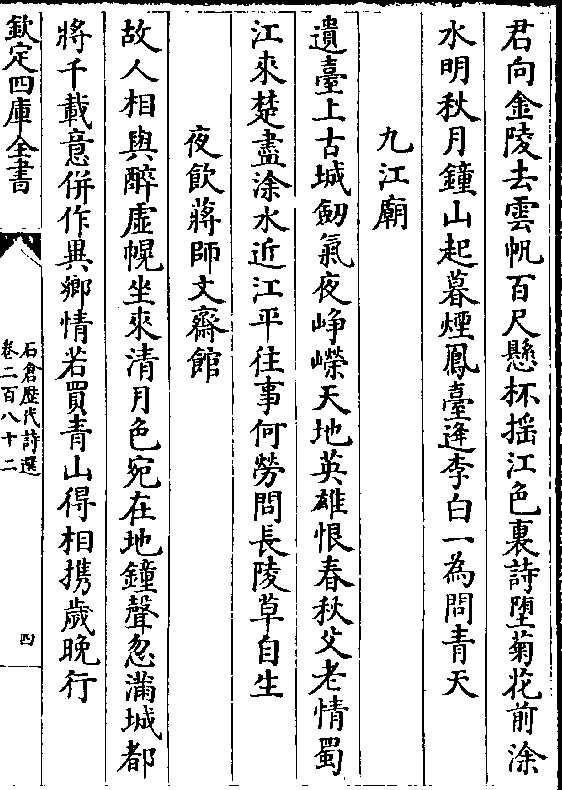 君向金陵去雲帆百尺懸杯揺江色裏詩墮菊花前涂
水明秋月鐘山起暮煙鳳臺逄李白一為問青天
九江廟
遺臺上古城劒氣夜崢嶸天地英雄恨春秋父老情蜀
江來楚盡涂水近江平往事何勞問長陵草自生
夜飲蔣師文齋館
故人相與醉虚幌坐來清月色宛在地鐘聲忽滿城都
將千載意併作異鄉情若買青山得相携歲晚行
欽定四庫全書
石倉歴代詩選
卷二百八十二
四